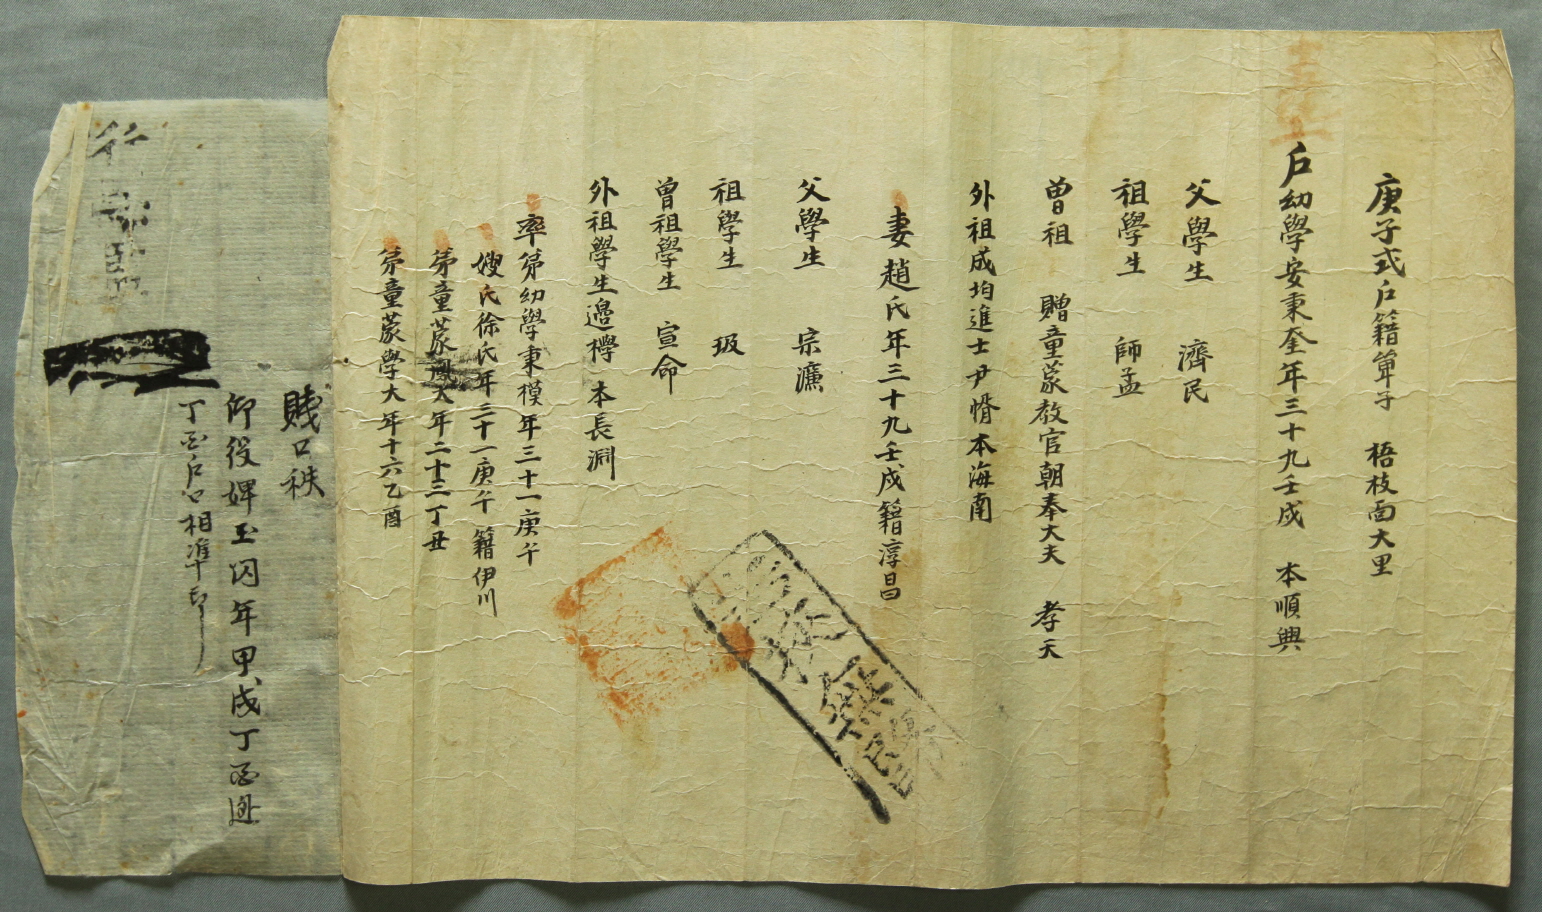 庚子式戶籍單子 梧枝面大里
戶幼學安秉奎年三十九壬戌 本順興
父學生 濟民
祖學生 師孟
曾祖 贈童蒙教官朝奉大夫 孝天
外祖成均進士尹愲本海南
妻趙氏年三十九壬戌籍淳昌
父學生 宗濂
祖學生 圾
曾祖學生 宣命
外祖學生邊樗 本長淵
率第幼學秉模年三十一庚午
嫂氏徐氏年三十一庚午 籍伊川
第童蒙 大年二十三丁丑
第童蒙學大年十六乙酉
賤口秩
仰役婢玉囚年甲戌丁酉逃
丁酉戶口相準印
行